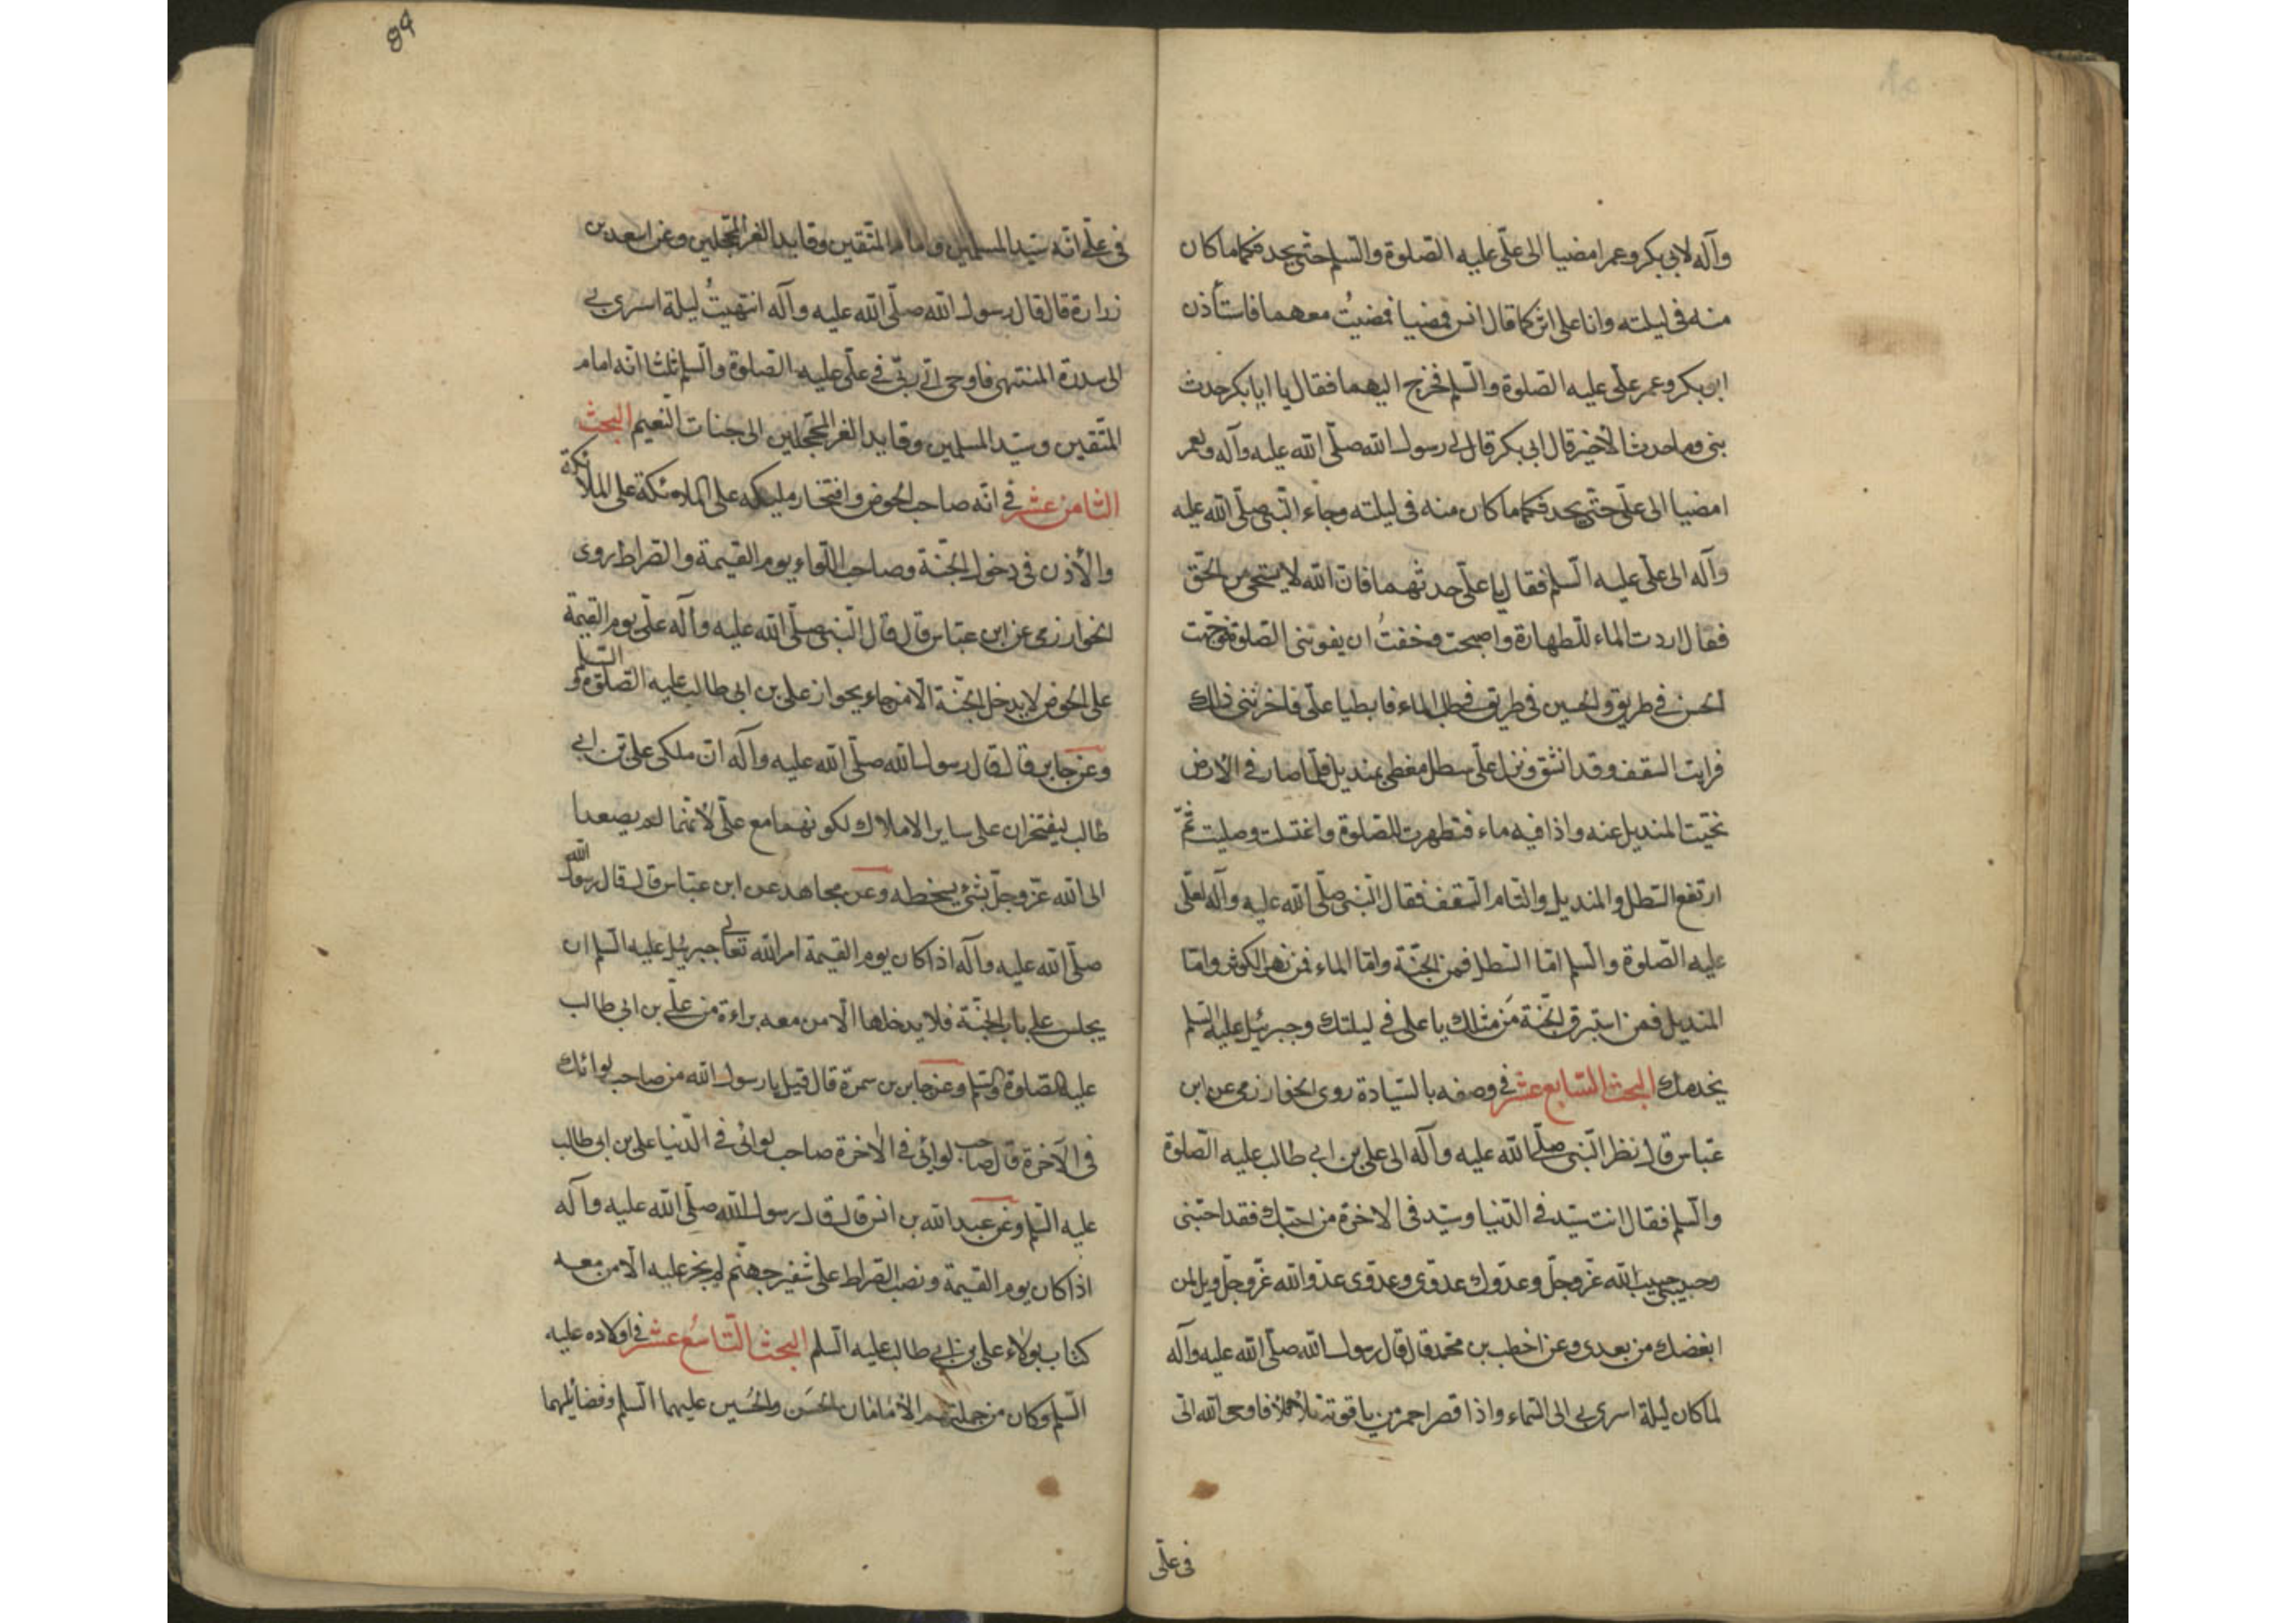 وآله لابي بكر وعمر امضيا الى علّى عليه الصّلوة والسّلم حتّى يحدثكما ما كان
منه فى ليلته وانا على اثركما قال انس فمضيا فمضيتُ معهما فاستأذن
ابى بكر وعمر على علّى عليه الصّلوة والسّلم فخرج اليهما فقال يا ابا بكر حدث
شئ وما حدث الّا خير قال ابى بكر قال لى رسول الله صلّى الله عليه وآله ولعمر
امضيا الى علّى حتّى يحدثكما ما كان منه فى ليلته وجاء النّبى صلّى الله عليه
وآله الى علّى عليه السّلم فقال يا علّى حدثهما فانّ الله لا يستحى من الحّق
فقال اردت الماء للّطهارة واصبحت وخفتُ ان يفوتنى الصّلوة فوجّهت
الحسن فى طريق والحسين فى طريق فى طلب الماء فابطيا علّى فاحزننى ذلك
فرايت السّقف وقد انشق ونزل علّى سطل مغطى بمنديل فلمّا صار فى الارض
نحّيت المنديل عنه واذا فيه ماء فتطهرت للصّلوة واغتسلت وصليت ثمّ
ارتفع السّطل والمنديل والتام السّقف فقال النّبى صلّى الله عليه وآله لعلّى
عليه الصّلوة والسّلم امّا السّطل فمن الجنّة وامّا الماء فمن نهر الكوثر وامّا
المنديل فمن استبرق الجنّة مَن مثلك يا على فى ليلتك وجبرئيل عليه السّلم
يخدمك البحث السّابع عشر فى وصفه بالسّيادة روى الخوارزمى عن ابن
عبّاس قال نظر النّبى صلّى الله عليه وآله الى على بن ابى طالب عليه الصّلوة
والسّلم فقال انت سيّد فى الدّنيا وسيّد فى الاخرة من احبّك فقد احبّنى
وحبيبى حبيب الله عزّ وجلّ وعدّوك عدوّى وعدوّى عدوّ الله عزّ وجلّ ويل لمن
ابغضك من بعدى وعن اخطب بن محمّد قال قال رسول الله صلّى الله عليه وآله
لما كان ليلة اسرى بى الى السّماء واذا قصر احمر من ياقوتة يتلألأ فاوحى الله الىّ
فى علّى
89
فى علّى انّه سيّد المسلمين وامام المتّقين وقايد الغر المحجّلين وعن اسعد بن
زرارة قال قال رسول الله صلّى الله عليه وآله انتهيتُ ليلة اسرى بى
الى سدرة المنتهى فاوحى الىّ ربّى فى علّى عليه الصّلوة والسّلم ثلثا انّه امام
المتّقين وسيّد المسلمين وقايد الغر المحجّلين الى جنات النّعيم البحث
الثّامن عشر فى انّه صاحب الحوض وافتخار مليكه على الملائكة على الملائكة
والأذن فى دخول الجنّة وصاحب اللّواء يوم القيمة والصّراط روى
الخوارزمى عن ابن عبّاس قال قال النّبى صلّى الله عليه وآله علّى يوم القيمة
على الحوض لا يدخل الجنّة الّا من جاء بجواز على بن ابى طالب عليه الصّلوة والسّلم
وعن جابر قال قال رسول الله صلّى الله عليه وآله انّ ملكى على بن ابى
طالب ليفتخران على ساير الاملاك لكونهما مع علّى لأنّهما لم يصعدا
الى الله عزّ وجلّ بشئ يسخطه وعن مجاهد عن ابن عبّاس قال قال رسول الله
صلّى الله عليه وآله اذا كان يوم القيمة امر الله تعالى جبرئيل عليه السّلم ان
يجلس على باب الجنّة فلا يدخلها الّا من معه براءة من علّى بن ابى طالب
عليه الصّلوة والسّلم وعن جابر بن سمرة قال قيل يا رسول الله من صاحب لوائك
فى الآخرة قال صاحب لوائى فى الآخرة صاحب لوائى فى الدّنيا على بن ابى طالب
عليه السّلم وعن عبد الله بن انس قال قال رسول الله صلّى الله عليه وآله
اذا كان يوم القيمة ونصب الصّراط على شفير جهنّم لم يجز عليه الّا من معه
كتاب بولاء على بن ابى طالب عليه السّلم البحث التّاسع عشر فى اولاده عليه
السّلم وكان من جملتهم الأمامان الحَسَن والحُسَين عليهما السّلم وفضائلهما